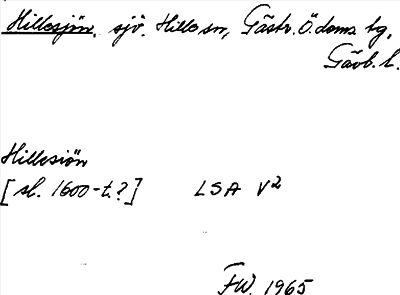 Hillesjön, sjö. Hille sn, Gästr. Ö. doms. tg,
Gävb. l.
Hillesiön
[sl. 1600-t.?] LSA V2
FW. 1965